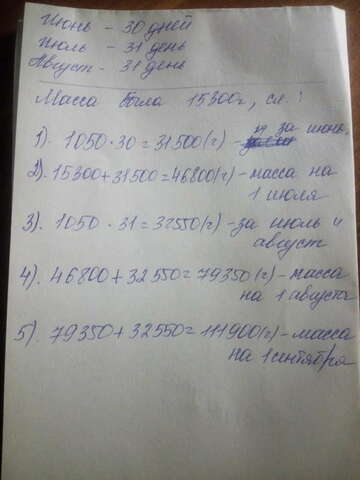 Июнь - 30 дней
Июль - 31 день
Август - 31 день
Масса была 15300г, сл.:
1). 1050 · 30 = 31500 (г) - за июнь.
2). 15300 + 31500 = 46800 (г) - масса на
1 июля
3). 1050 · 31 = 32550 (г) - за июль и
август
4). 46800 + 32550 = 79350 (г) - масса
на 1 августа
5). 79350 + 32550 = 111900 (г) - масса
на 1 сентября